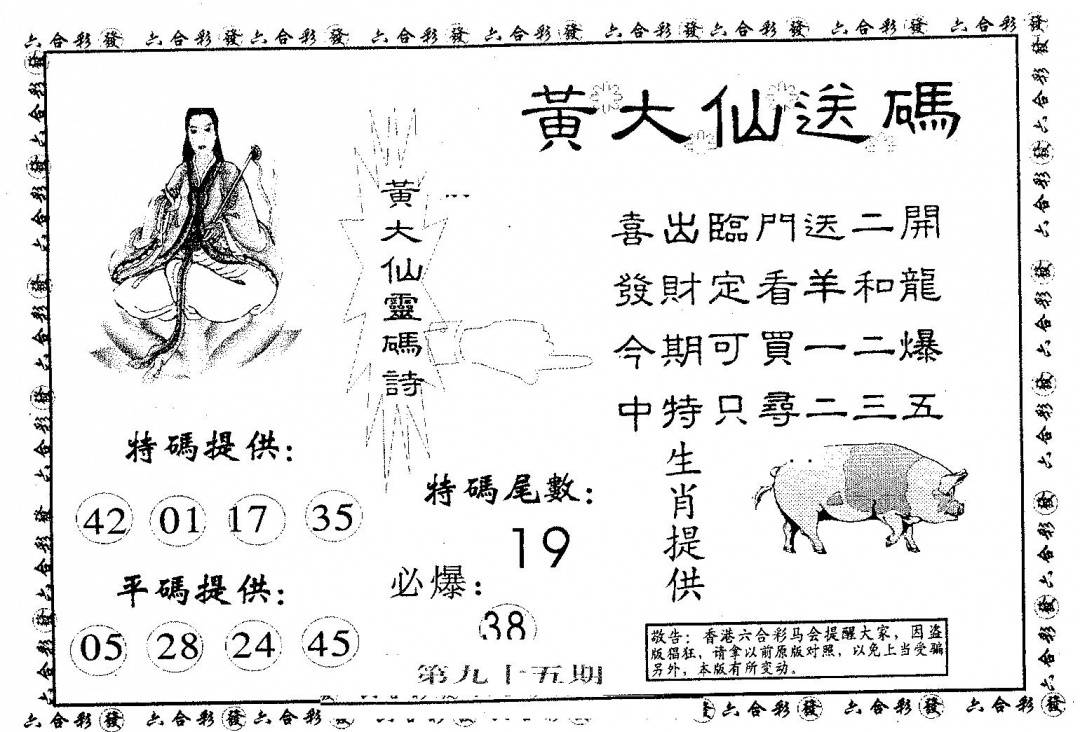 六合彩發 六合彩發六合彩發 六合彩發 六合彩發 六合彩發六合彩發 六合彩發 六合彩發
黃大仙送碼
黃大仙靈碼詩
喜出臨門送二開
發財定看羊和龍
今期可買一二爆
中特只尋二三五
特碼提供：
42 01 17 35
平碼提供：
05 28 24 45
特碼尾數：
19
必爆：
38
第九十五期
生肖提供
敬告：香港六合彩马会提醒大家，因盗
版猖狂，请拿以前原版对照，以免上当受骗
另外，本版有所变动。
六合彩發 六合彩發六合彩 六合彩發 六合彩發 六合彩發